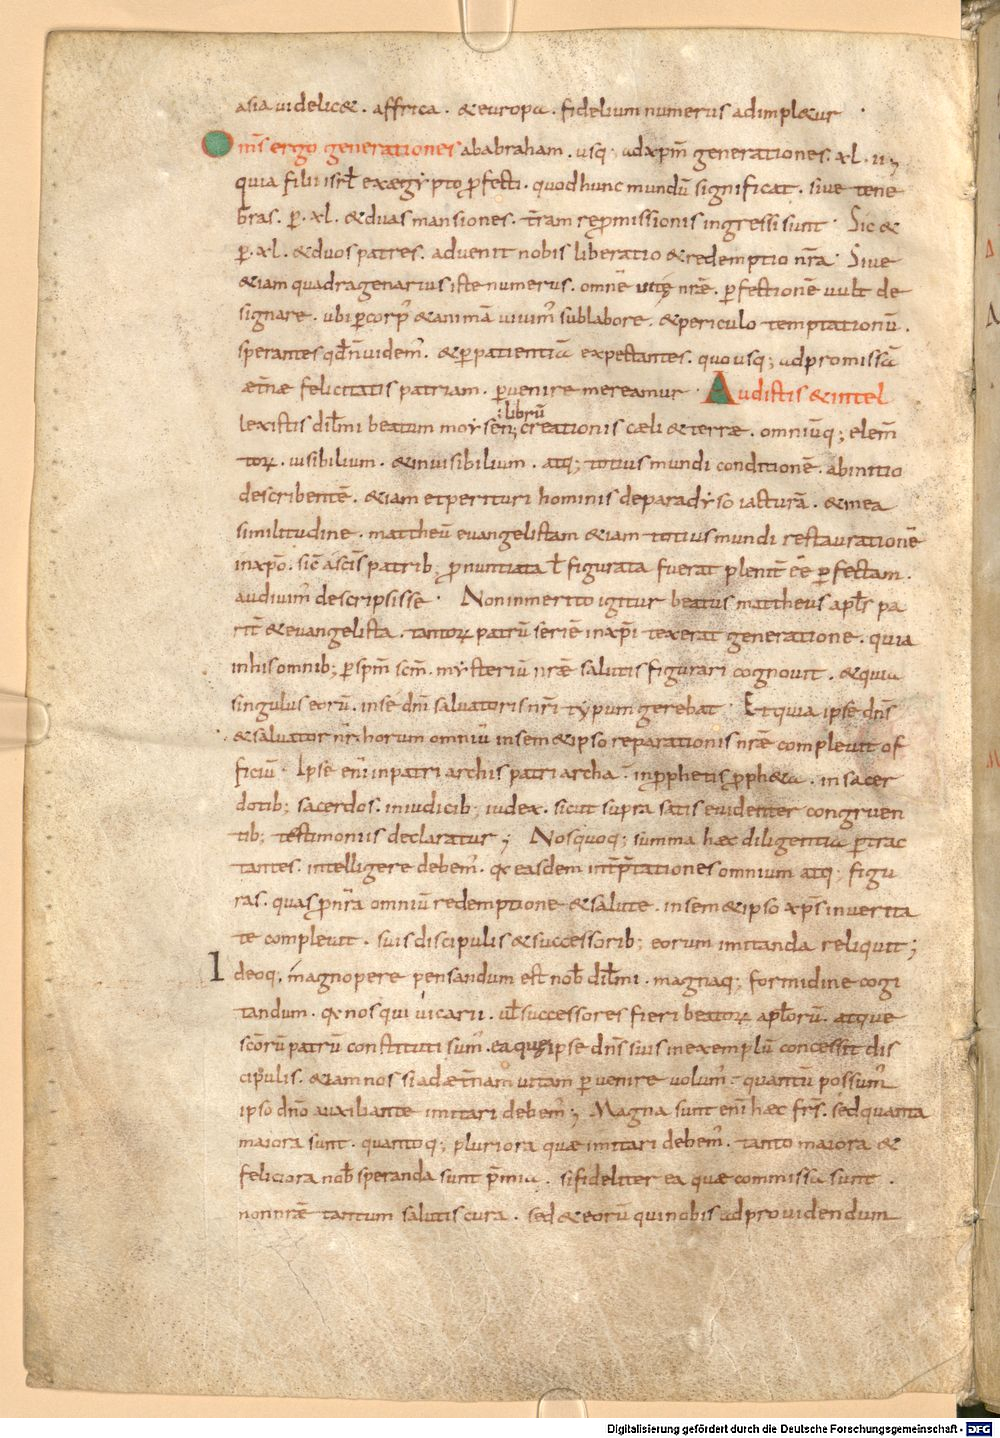 asia uidelic&. affrica. &europa. fidelium numerus adimpl&ur.
Om̄s ergo generationes ababraham. usq; adxp̄m generationes. xl. ii;
quia filii isrł exægypto ꝓfecti. quod hunc mundū significat. siue tene
bras. ꝑ. xl. & duas mansiones. t̄ram repromissionis ingressi sunt. Sic &
ꝑ. xl. & duos patres. aduenit nobis liberatio & redemptio nr̄a. Siue
&iam quadragenarius iste numerus. omnē uitę nrǣ. ꝑfectionē uult de
signare. ubi ꝑ corp' & animā uiuim' sub labore. & periculo temptationū.
sperantes qd̄ n̄ uidem'. & ꝑ patientiā expectantes. quo usq; ad promissā
æt̄næ felicitatis patriam. ꝑuenire mereamur. Audistis & intel
lexistis dił̄mi beatum moysen; creationis cæli & terræ. omniūq; elem̄
:librū
torꝝ. uisibilium. & inuisibilium. atq; totius mundi conditionē. ab initio
describentē. &iam et perituri hominis de paradyso iacturā. & in ea
similitudine. mattheū euangelistam &iam totius mundi restaurationē
in xp̄o. sic̄ a sc̄is patrib; ꝓnuntiata ł figurata fuerat plenit̄ ee̅ ꝑfectam.
audiuim' descripsisse. Non inmerito igitur beatus mattheus apł̄s pa
rit̄ & euangelista. tantorꝝ patrū seriē in xp̄i texerat generatione. quia
in his omnib; ꝑ sp̄m sc̄m. mysteriū nrǣ salutis figurari cognouit. & quia
singulus eorū. in se dn̄i saluatoris nr̄i typum gerebat. Et quia ipse dn̄s
& saluator nr̄. horum omniū in sem&ipso reparationis nrǣ compleuit of
ficiū. Ipse eni̅ in patriarchis patriarcha. in ꝓphetis ꝓph&a. in sacer
dotib; sacerdos. in iudicib; iudex. sicut supra satis euidenter congruen
tib; testimoniis declaratur; Nos quoq; summa hæc diligentia ꝑtrac
tantes. intelligere debem'. qa easdem int̄p̄tationes omnium atq; figu
ras. quas ꝓ nr̄a omniū redemptione & salute. in sem&ipso xp̄s in uerita
te compleuit. suis discipulis & successorib; eorum imitanda reliquit;
Ideoq; magnopere pensandum est nob̄ dił̄mi. magnaq; formidine cogi
tandum. qa nos qui uicarii. uł successores fieri beatorꝝ apł̄orū. atque
sc̄orū patrū constituti sum'. ea que ipse dn̄s suis in exemplū concessit dis
cipulis. &iam nos si ad æt̄nam uitam ꝑuenire uolum'. quantū possum'
ipso dn̄o auxiliante imitari debem'; Magna sunt eni̅ hæc fr̄s. sed quanta
maiora sunt. quantoq; pluriora quæ imitari debem'. tanto maiora &
feliciora nob̄ speranda sunt p̄mia. si fideliter ea quæ commissa sunt.
non nrǣ tantum salutis cura. sed & eorū qui nobis ad prouidendum
Digitalisierung gefördert durch die Deutsche Forschungsgemeinschaft - DFG